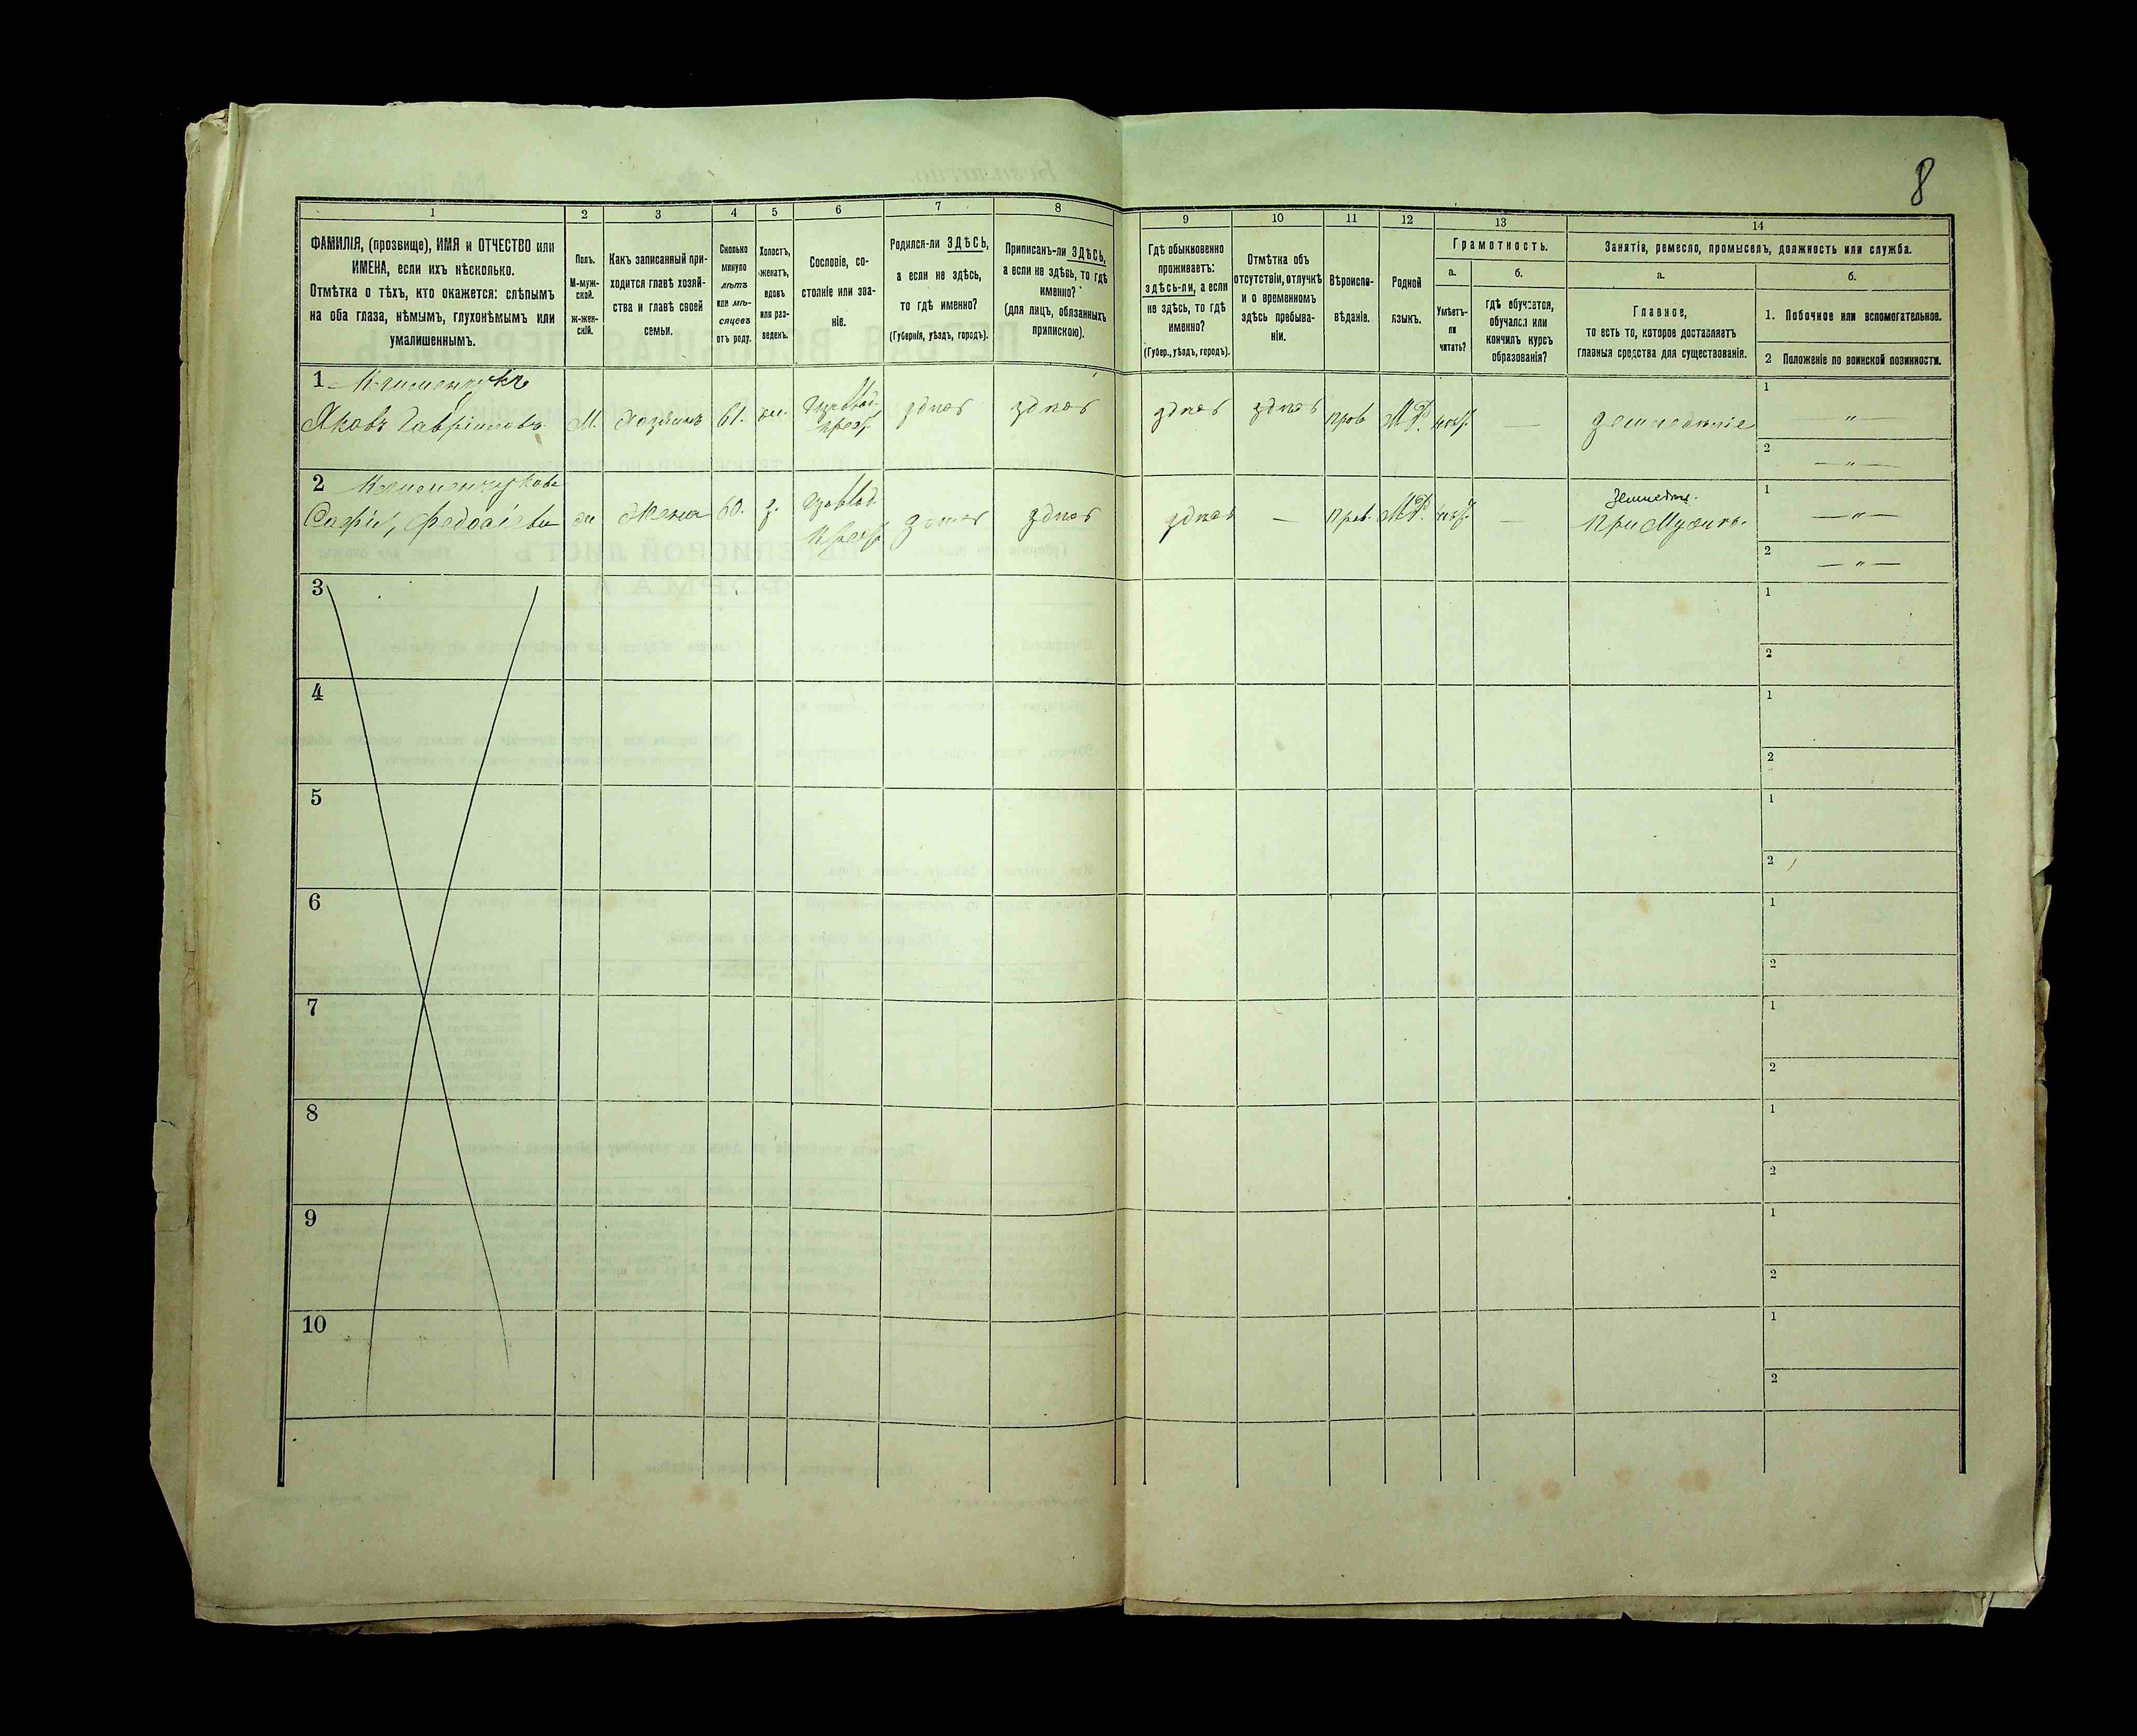 8
1
2
3
4
5
6
7
8
9
10
11
12
13
14
ФАМИЛІЯ, (прозвище), ИМЯ и ОТЧЕСТВО или
ИМЕНА, если ихъ нѣсколько.
Отмѣтка о тѣхъ, кто окажется: слѣпымъ
на оба глаза, нѣмымъ, глухонѣмымъ или
умалишеннымъ.
Полъ.
М-муж-
ской.
Ж-жен-
скій.
Какъ записанный при-
ходится главѣ хозяй-
ства и главѣ своей
семьи.
Сколько
минуло
лѣтъ
или мѣ-
сяцевъ
отъ роду.
Холостъ,
женатъ,
вдовъ
или раз-
веденъ.
Сословіе, со-
стояніе или зва-
ніе.
Родился-ли ЗДѢСЬ,
а если не здѣсь,
то гдѣ именно?
(Губернія, уѣздъ, городъ).
Приписанъ-ли ЗДѢСЬ,
а если не здѣсь, то гдѣ
именно?
(для лицъ, обязанныхъ
припискою).
Гдѣ обыкновенно
проживаетъ:
здѣсь-ли, а если
не здѣсь, то гдѣ
именно?
(Губер., уѣздъ, городъ).
Отмѣтка объ
отсутствіи, отлучкѣ
и о временномъ
здѣсь пребыва-
ніи.
Вѣроиспо-
вѣданіе.
Родной
языкъ.
Грамотность.
а.
Умѣетъ-
ли
читать?
б.
гдѣ обучается,
обучался или
кончилъ курсъ
образованія?
Занятіе, ремесло, промыселъ, должность или служба.
а.
Главное,
то есть то, которое доставляетъ
главныя средства для существованія.
б.
1. Побочное или вспомогательное.
2 Положеніе по воинской повинности.
1
Яковъ Гавріиловъ М. хозяинъ 61. здѣсь здѣсь здѣсь здѣсь прав. — земледѣліе
1 — „ —
2 — „ —
2
жена 60. здѣсь здѣсь здѣсь — прав. — при мужѣ.
1 — „ —
2 — „ —
3
1
2
4
1
2
5
1
2
6
1
2
7
1
2
8
1
2
9
1
2
10
1
2